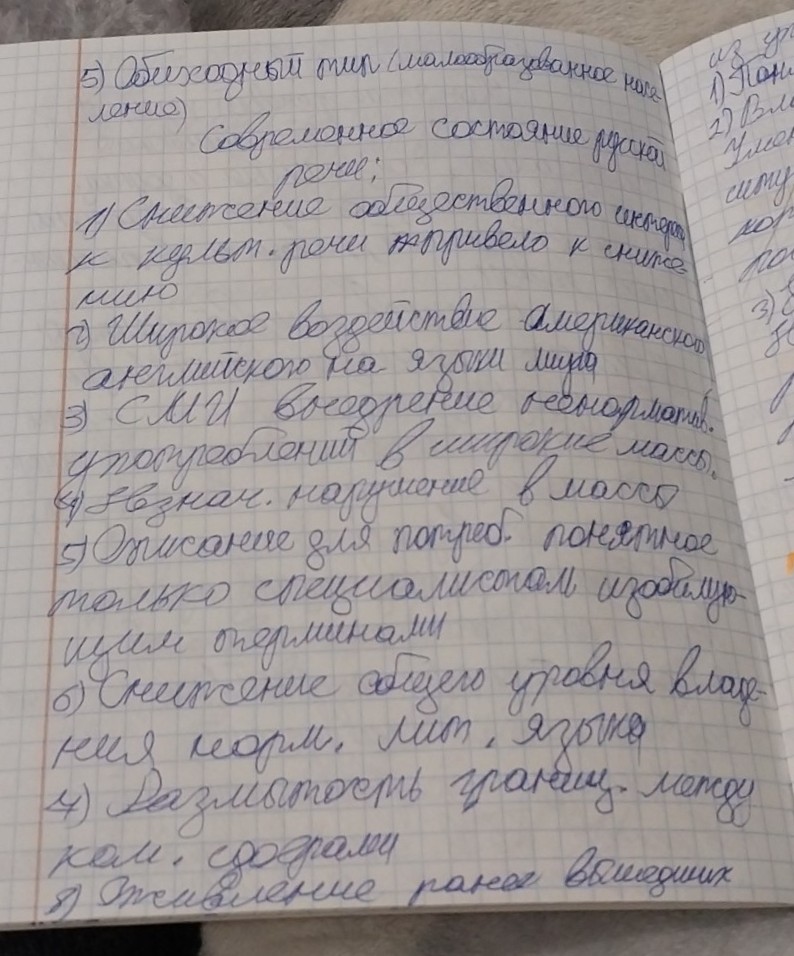 5) Обиходный тип (малообразованное насе-
ление)
Современное состояние русской
речи:
1) Снижение общественного интереса
к культ. речи привело к сниже-
нию
2) Широкое воздействие американского
английского на языки мира
3) СМИ внедрение ненорматив.
употреблений в широкие массы.
4) Незнач. нарушение в массы
5) Описание для потреб. понятное
только специалистам изобилую-
щим терминами
6) Снижение общего уровня владе-
ния норм. лит. языка
7) Размытость границ. между
ком. сферами
8) Оживление ранее вышедших
из
1)
2)
3)